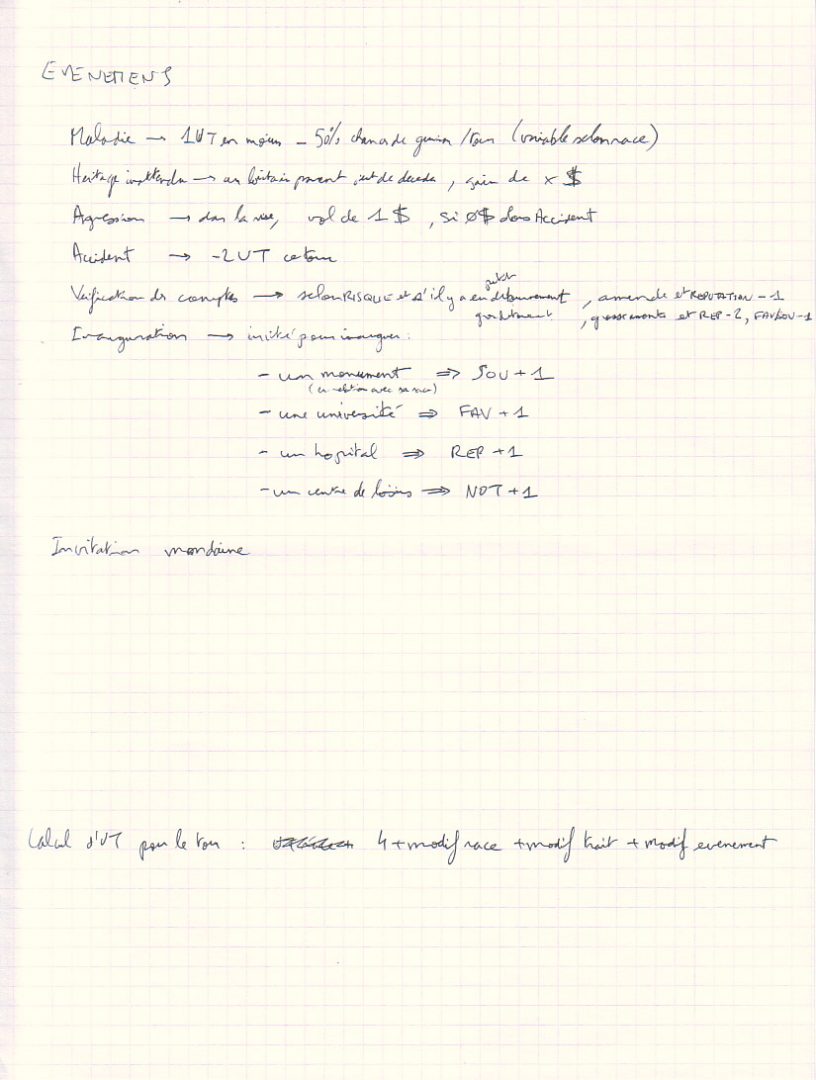 EVENEMENTS
Maladie → 1UT en moins - 50% chance de guérison /tour (variable selon race)
Heritage inattendu → un lointain parent vient de deceder, gain de x $
Agression → dans la rue, vol de 1 $, si 0$ alors Accident
Accident → -2UT ce tour
petit
Verification des comptes → selon RISQUE et s'il y a eu detournement, amende et REPUTATION -1
gros detournement, grosse amende et REP-2, FAV/SOU-1
Inauguration → invité pour inaugurer :
- un monument ⇒ SOU+1
(en relation avec sa race)
- une université ⇒ FAV+1
- un hopital ⇒ REP+1
- un centre de loisirs ⇒ NOT+1
Invitation mondaine
Calcul d'UT pour le tour : 4+modif race +modif trait +modif evenement